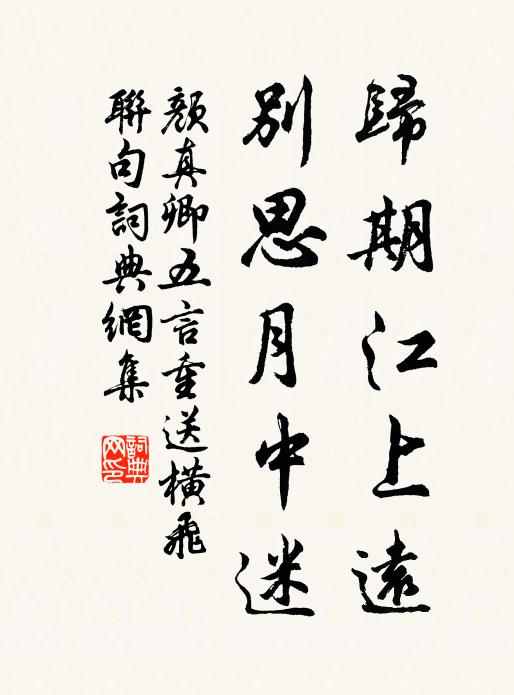 歸期江上遠
別思月中迷
顏真卿五言重送橫飛
聯句詞典網集
詞典网印